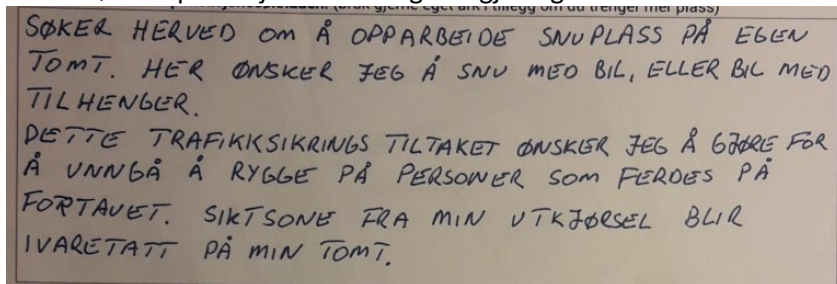 (bruk gjerne eget ark i tillegg om du trenger mer plass)
SØKER HERVED OM Å OPPARBEIDE SNUPLASS PÅ EGEN
TOMT. HER ØNSKER JEG Å SNU MED BIL, ELLER BIL MED
TILHENGER.
DETTE TRAFIKKSIKRINGS TILTAKET ØNSKER JEG Å GJØRE FOR
Å UNNGÅ Å RYGGE PÅ PERSONER SOM FERDES PÅ
FORTAUET. SIKTSONE FRA MIN UTKJØRSEL BLIR
IVARETATT PÅ MIN TOMT.